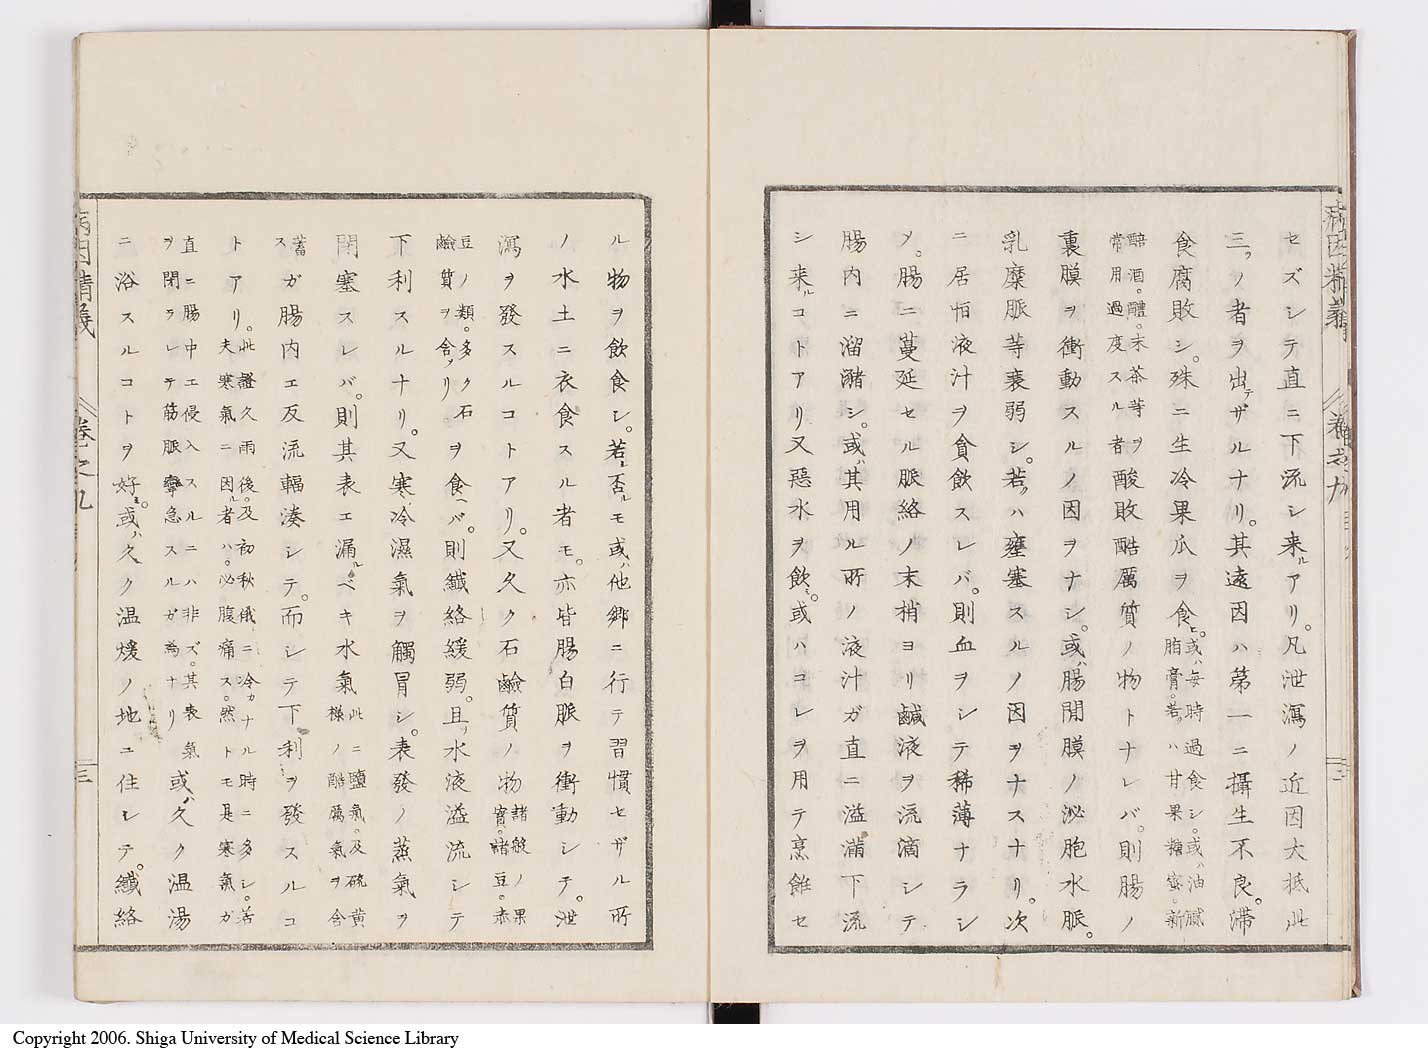 病因精義 巻之九
セズシテ直ニ下流シ来ルアリ。凡泄瀉ノ近因大抵此
三ツノ者ヲ出デザルナリ。其遠因ハ第一ニ攝生不良。滞
食腐敗シ。殊ニ生冷果瓜ヲ食ヒ。或ハ毎時過食シ。或ハ油膩
脂膏。若クハ甘果糖蜜。新
醅酒。醴。末茶等ヲ
常用過度スル者酸敗酷厲質ノ物トナレバ。則腸ノ
裏膜ヲ衝動スルノ因ヲナシ。或ハ腸間膜ノ泌胞水脈。
乳糜脈等衰弱シ。若クハ壅塞スルノ因ヲナスナリ。次
ニ居恒液汁ヲ貪飲スレバ。則血ヲシテ稀薄ナラシ
メ。腸ニ蔓延セル脈絡ノ末梢ヨリ鹹液ヲ流滴シテ
腸内ニ溜瀦シ。或ハ其用ル所ノ液汁ガ直ニ溢満下流
シ来ルコトアリ又惡水ヲ飲ミ。或ハコレヲ用テ烹飪セ
ル物ヲ飲食シ。若シ否ルモ或ハ他郷ニ行テ習慣セザル所
ノ水土ニ衣食スル者モ。亦皆腸白脈ヲ衝動シテ。泄
瀉ヲ發スルコトアリ。又久ク石鹼質ノ物諸般ノ果
實。諸豆。赤
豆ノ類。多ク石
鹼質ヲ含メリヲ食ヘバ。則纎絡緩弱。且ツ水液溢流シテ
下利スルナリ。又寒冷濕氣ヲ觸冒シ。表發ノ蒸氣ヲ
閉塞スレバ。則其表エ漏ルベキ水氣此ニ鹽氣。及硫黄
様ノ酷厲氣ヲ含
蓄
スガ腸内エ反流輻湊シテ。而シテ下利ヲ發スルコ
トアリ。此證久雨後。及初秋俄ニ冷カナル時ニ多シ。若
夫寒氣ニ因ル者ハ。必腹痛ス。然トモ是寒氣ガ
直ニ腸中エ侵入スルニハ非ズ。其表氣
ヲ閉ラレテ筋脈攣急スルガ為ナリ或ハ久ク温湯
ニ浴スルコトヲ好ミ。或ハ久ク温煖ノ地ニ住シテ。纎絡
病因精義 巻之九 三
Copyright 2006. Shiga University of Medical Science Library